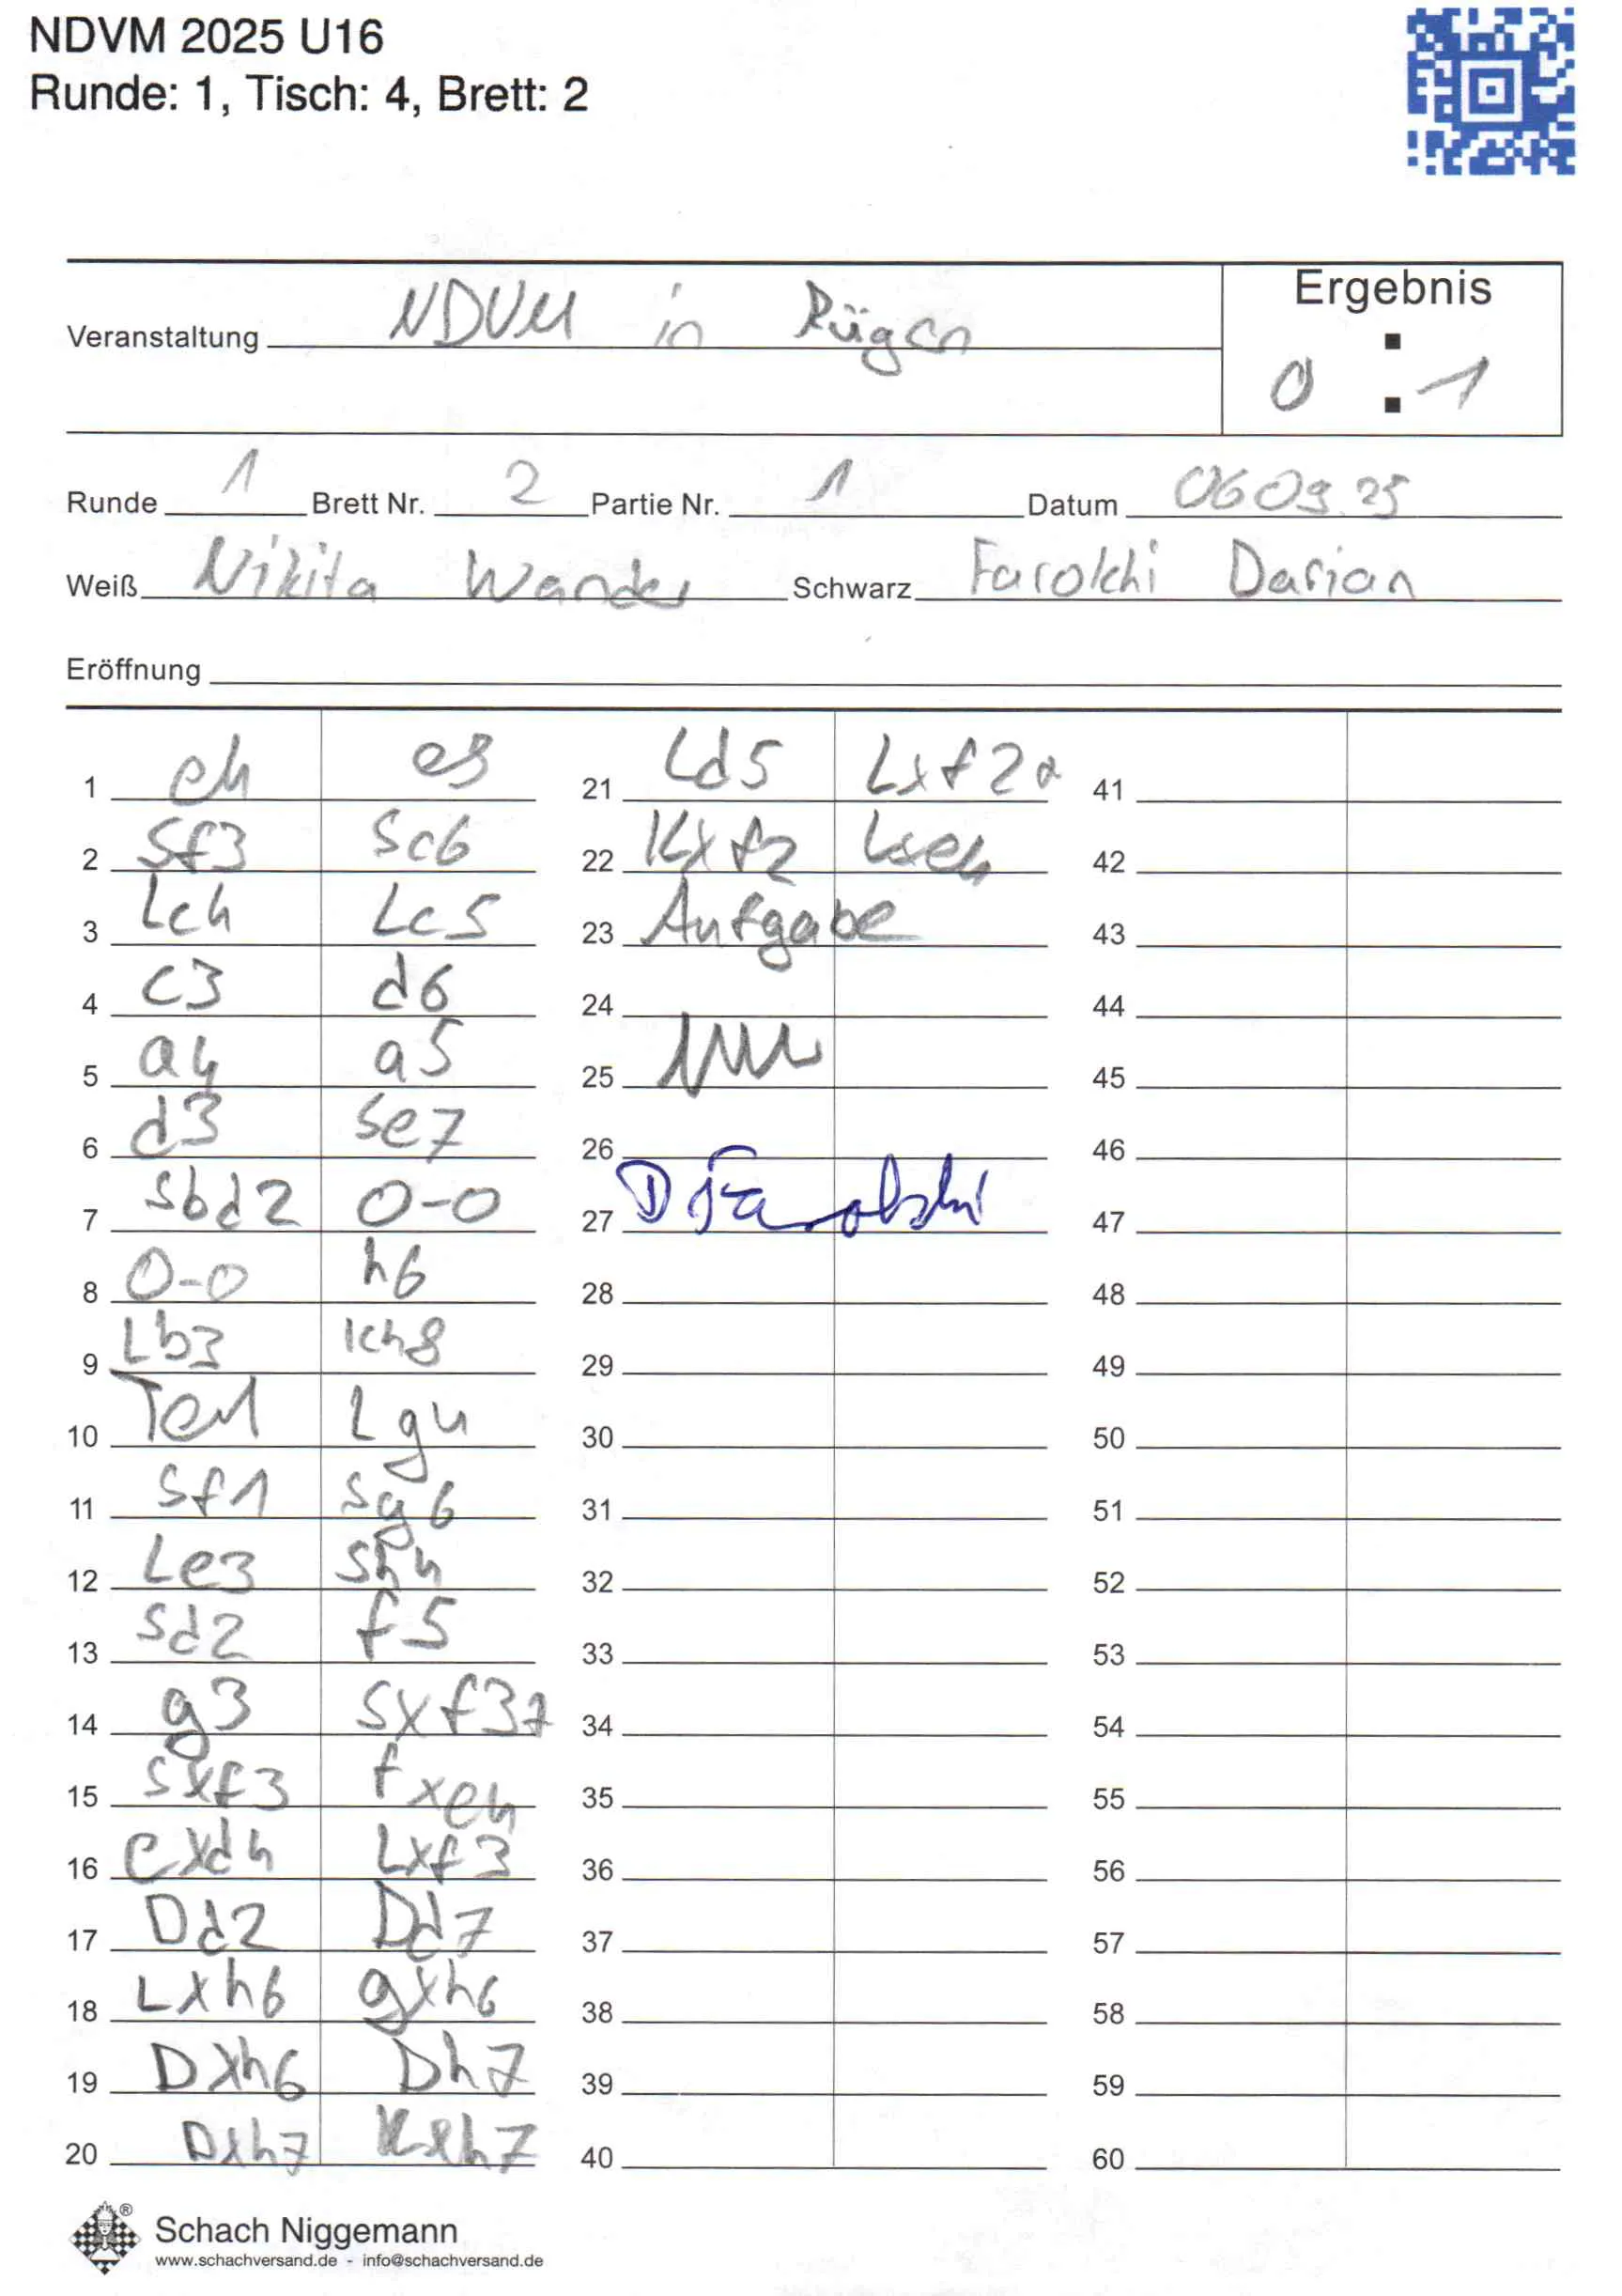 NDVM 2025 U16
Runde: 1, Tisch: 4, Brett: 2
Ergebnis
Veranstaltung NDVM in Rügen
0 : 1
Runde 1 Brett Nr. 2 Partie Nr. 1 Datum 06 09.25
Weiß Nikita Wander Schwarz Farokhi Darian
Eröffnung
1 e4 e5 21 Ld5 Lxf2+ 41
2 Sf3 Sc6 22 Kxf2 Lxe4 42
3 Lc4 Lc5 23 Aufgabe 43
4 c3 d6 24 44
5 a4 a5 25 45
6 d3 Se7 26 46
7 Sbd2 0-0 27 D Farokhi 47
8 0-0 h6 28 48
9 Lb3 Kh8 29 49
10 Te1 Lg4 30 50
11 Sf1 Sg6 31 51
12 Le3 Sh4 32 52
13 Sd2 f5 33 53
14 g3 Sxf3+ 34 54
15 Sxf3 fxe4 35 55
16 exd4 Lxf3 36 56
17 Dd2 Dd7 37 57
18 Lxh6 gxh6 38 58
19 Dxh6 Dh7 39 59
20 Dxh7 Kxh7 40 60
Schach Niggemann
www.schachversand.de - info@schachversand.de